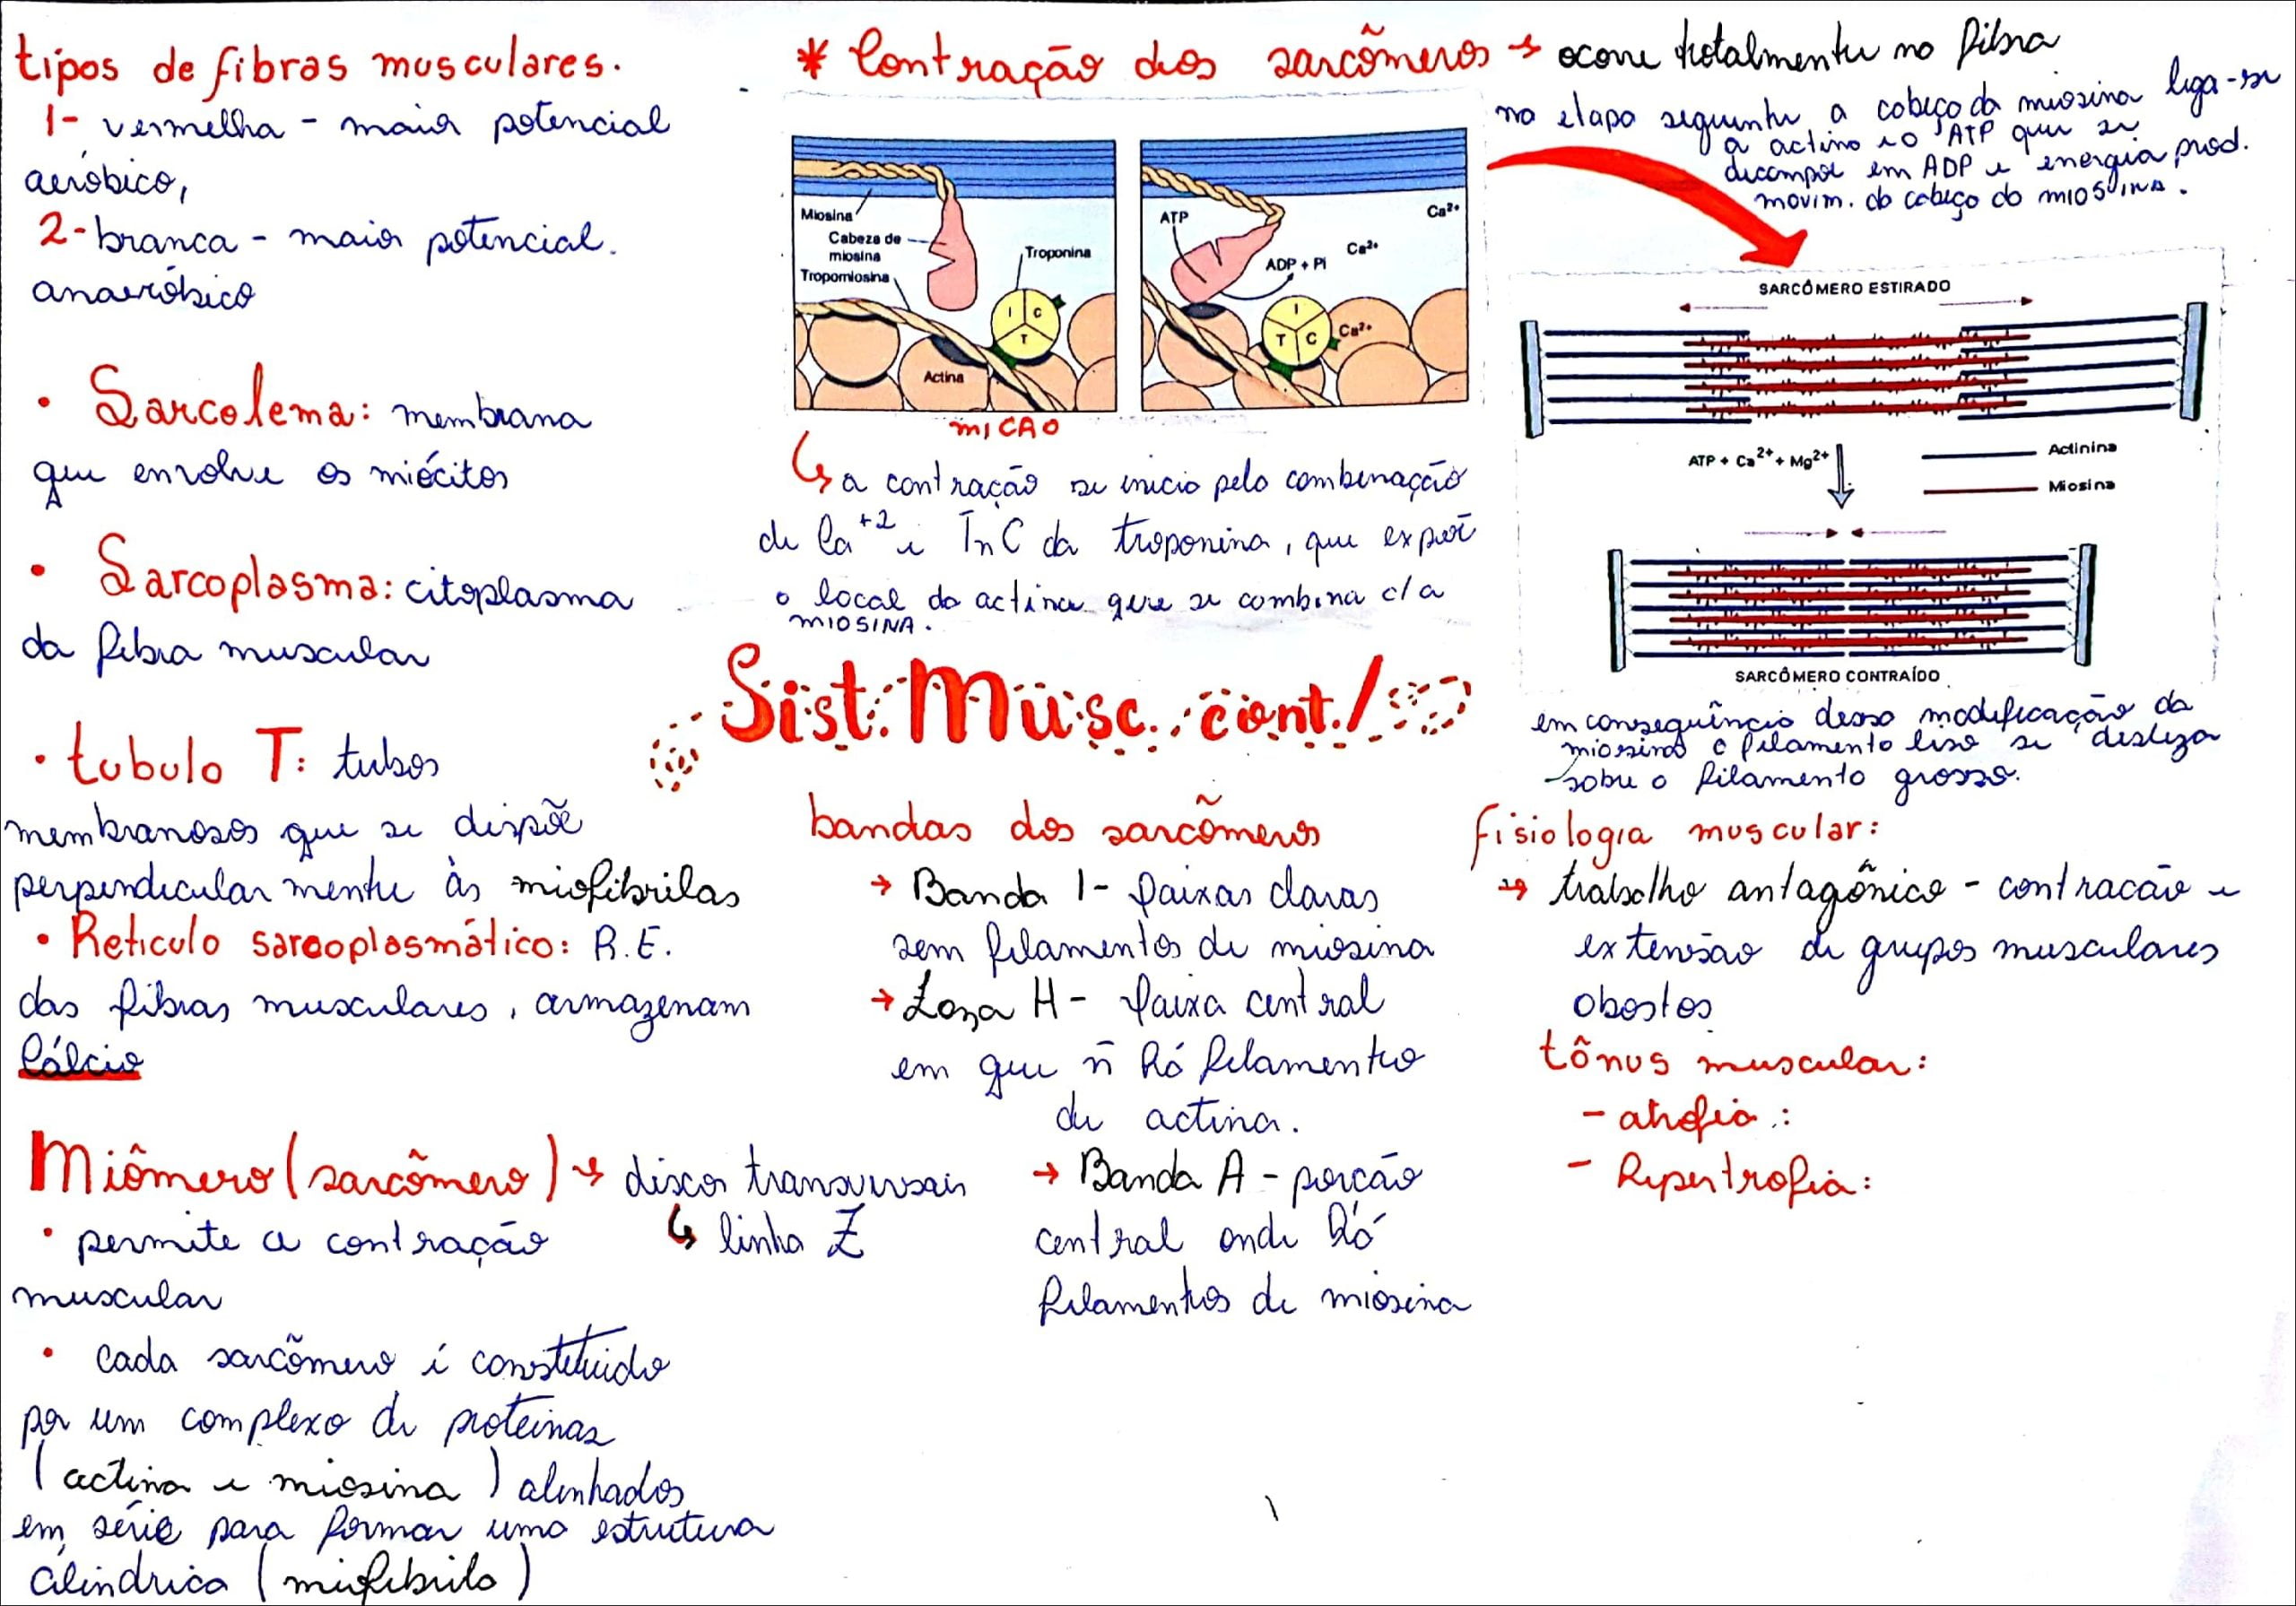 tipos de fibras musculares.
1- vermelha - maior potencial
aeróbico,
2- branca - maior potencial.
anaeróbico
• Sarcolema: membrana
que envolve os miócitos
• Sarcoplasma: citoplasma
da fibra muscular
• tubulo T: tubos
membranosos que se dispõe
perpendicular mente às miofibrilas
• Reticulo sarcoplasmático: R.E.
das fibras musculares, armazenam
Cálcio
Miômero (sarcômero) → discos transversais
↳ linha Z
• permite a contração
muscular
• cada sarcômero é constituido
por um complexo de proteinas
(actina e miosina) alinhados
em série para formar uma estrutura
cilindrica (miofibrila)
* Contração dos sarcômeros → ocorre totalmente na fibra
Miosina
Cabeza de
miosina
Tropomiosina
Troponina
I C
T
Actina
ATP
ADP + Pi
Ca²⁺
Ca²⁺
I
T C
Ca²⁺
↳ a contração se inicia pela combinação
de Ca⁺² e TnC da troponina, que expõe
o local da actina que se combina c/ a
MIOSINA.
na etapa seguinte a cabeça da miosina liga-se
a actina e o ATP que se
decompõe em ADP e energia prod.
movim. da cabeça da MIOSINA.
SARCÔMERO ESTIRADO
ATP + Ca²⁺ + Mg²⁺
Actinina
Miosina
SARCÔMERO CONTRAÍDO
em consequência dessa modificação da
miosina o filamento liso se desliza
sobre o filamento grosso.
Sist. Musc. cont./
bandas dos sarcômeros
→ Banda I - faixas claras
sem filamentos de miosina
→ Zona H - faixa central
em que ñ há filamento
de actina.
→ Banda A - porção
central onde há
filamentos de miosina
fisiologia muscular:
→ trabalho antagônico - contracão e
extensão de grupos musculares
obostos
tônus muscular:
- atrofia:
- hipertrofia: